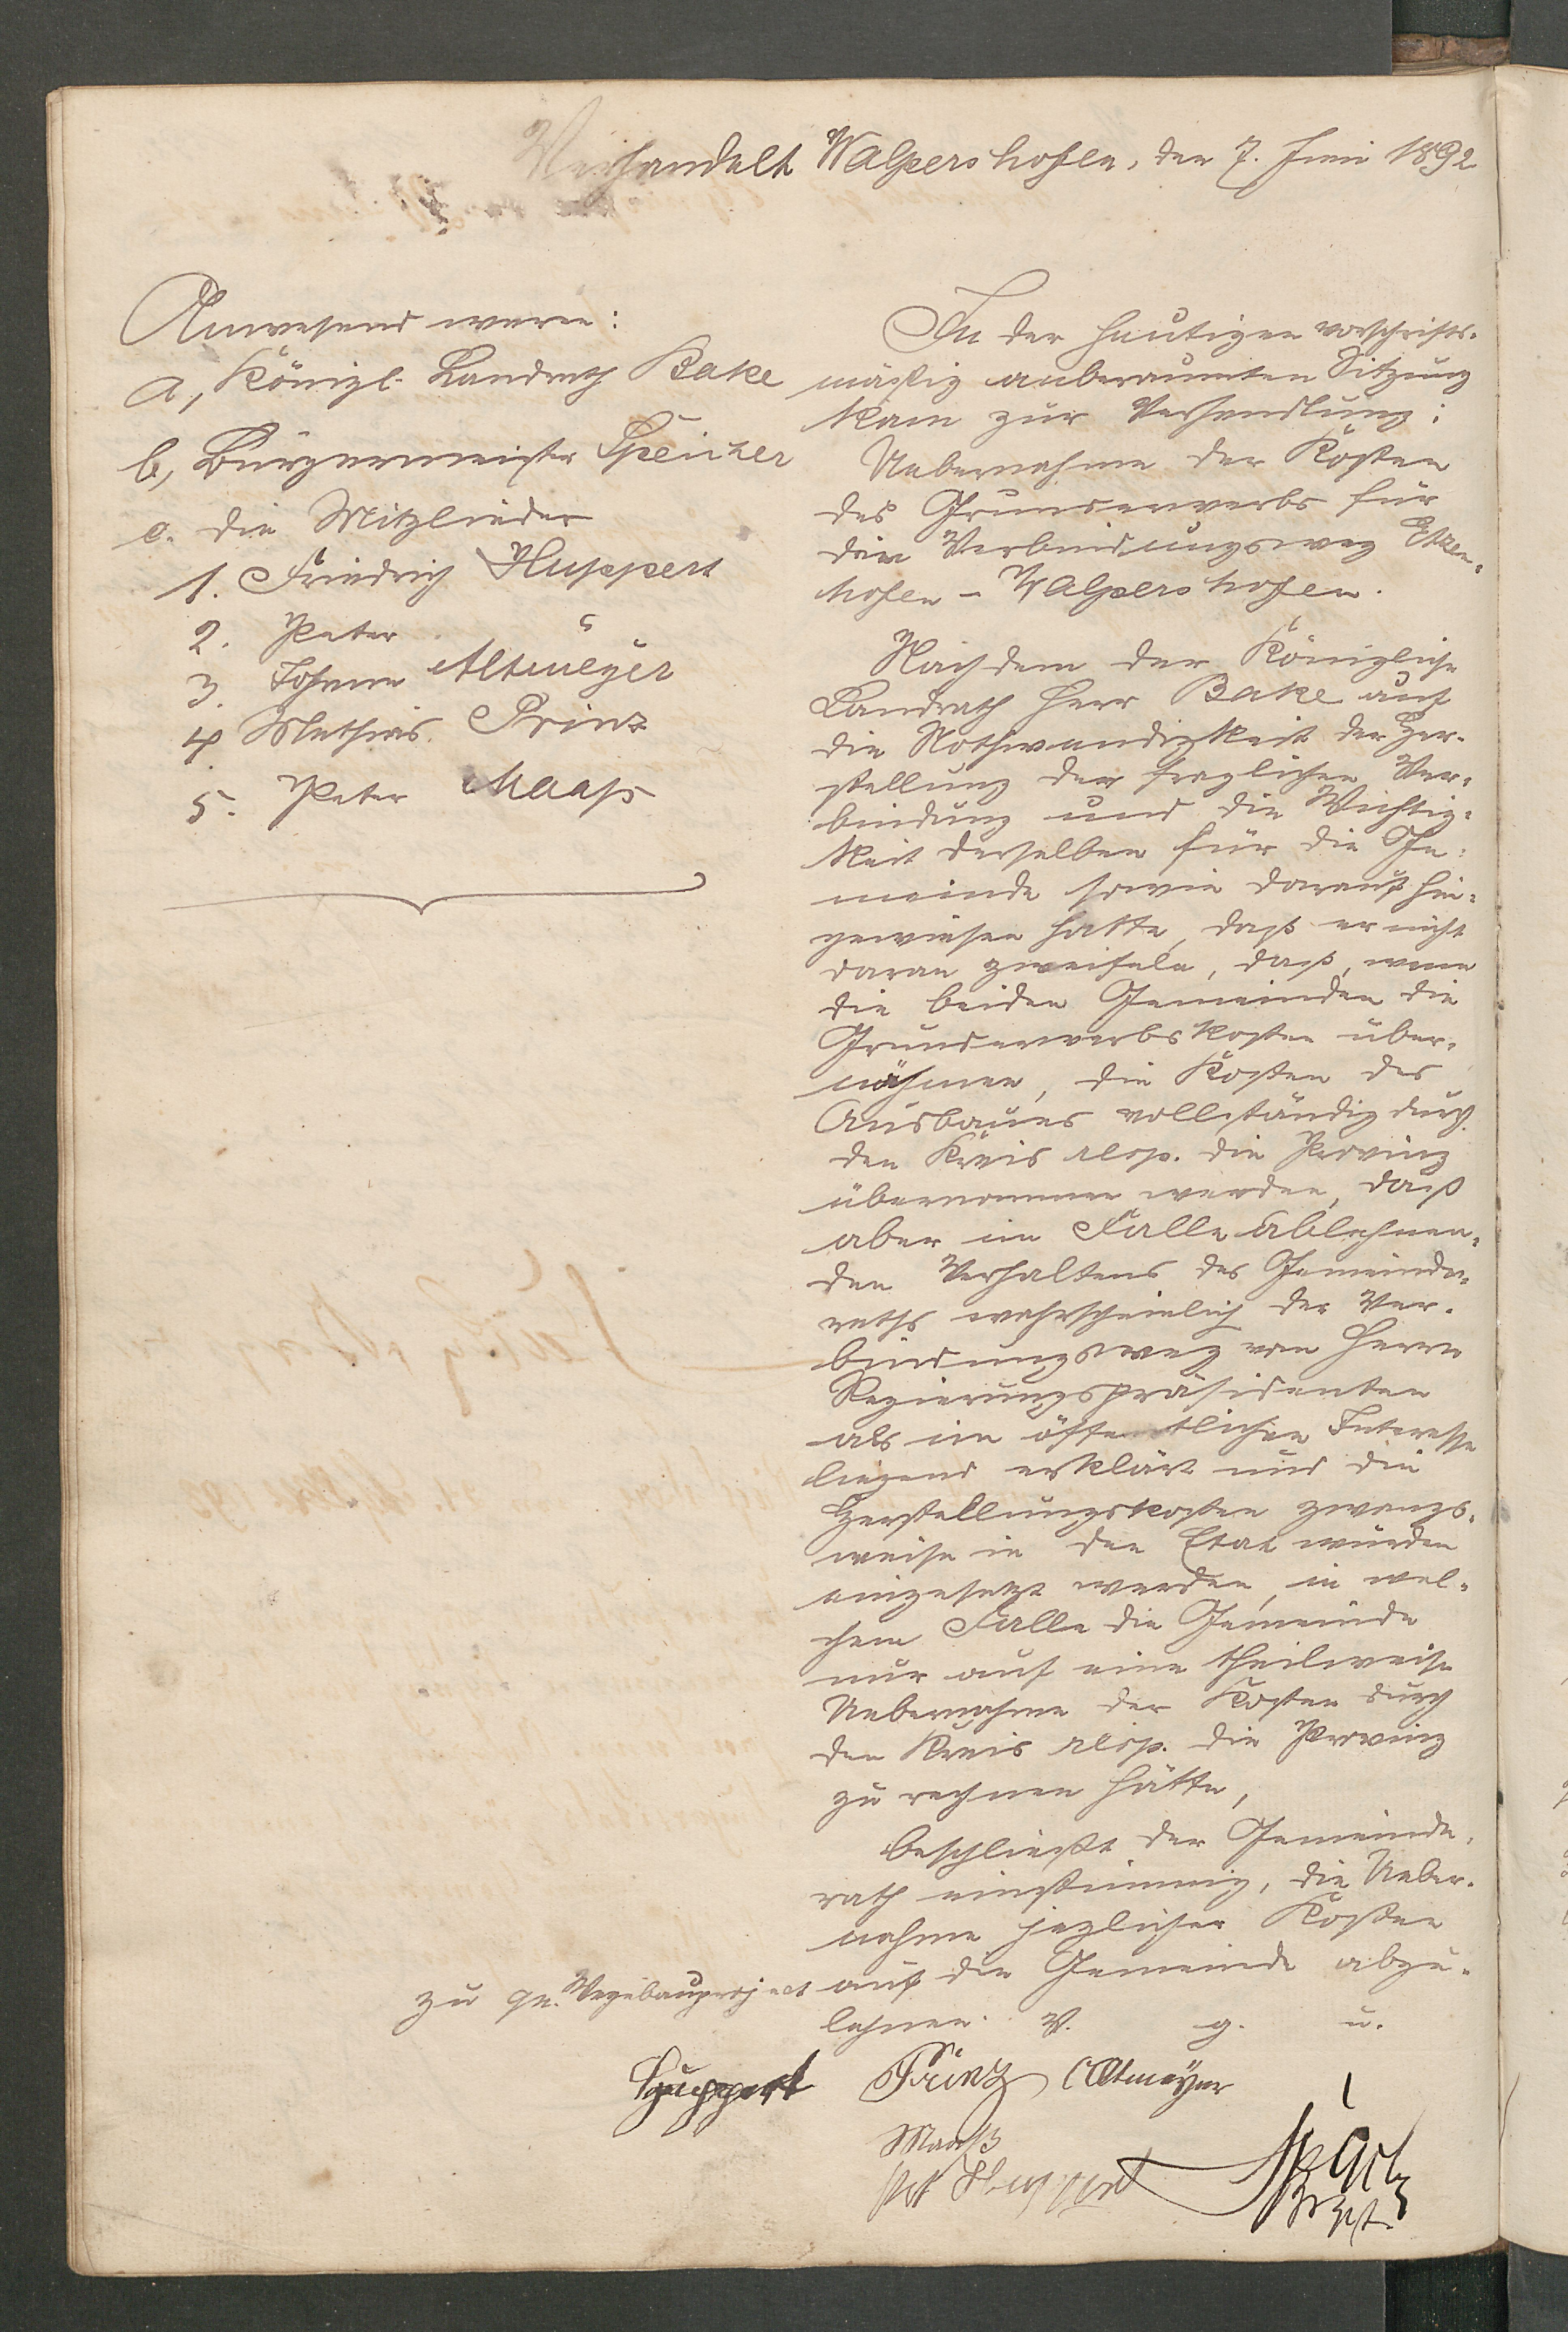 Verhandelt Walpershofen, den 7. Juni 1892
Anwesend waren:
a, Königl. Landrath Bake
b, Bürgermeister Speicher
c. die Mitglieder
1. Friedrich Huppert
2. Peter "
3. Johann Altmeyer
4 Mathias Prinz
5. Peter Maaß
In der heutigen vorschrifts-
mäßig anberaumten Sitzung
kam zur Verhandlung:
Uebernahme der Kosten
des Grunderwerbs für
den Verbindungsweg Etzen-
hofen - Walpershofen.
Nachdem der Königliche
Landrath Herr Bake auf
die Nothwendigkeit der Her-
stellung der fraglichen Ver-
bindung und die Wichtig-
keit derselben für die Ge-
meinde sowie darauf hin-
gewiesen hatte, daß er nicht
daran zweifele, daß, wenn
die beiden Gemeinden die
Grunderwerbskosten über-
nähmen, die Kosten des
Ausbaues vollständig durch
den Kreis resp. die Provinz
übernommen werden, daß
aber im Falle ablehnen-
den Verhaltens des Gemeinde-
raths wahrscheinlich der Ver-
bindungsweg von Herrn
Regierungspräsidenten
als im öffentlichen Interesse
liegend erklärt und die
Herstellungskosten zwangs-
weise in den Etat würden
eingesetzt werden, in wel-
chem Falle die Gemeinde
nur auf eine theilweise
Uebernahme der Kosten durch
den Kreis resp. die Provinz
zu rechnen hätte,
beschließt der Gemeinde-
rath einstimmig, die Ueber-
nahme jeglicher Kosten
zu qu. Wegebauproject auf die Gemeinde abzu-
lehnen. V. g. u.
Huppert Prinz Altmeyer
Maaß
Pet Huppert
Bgst.